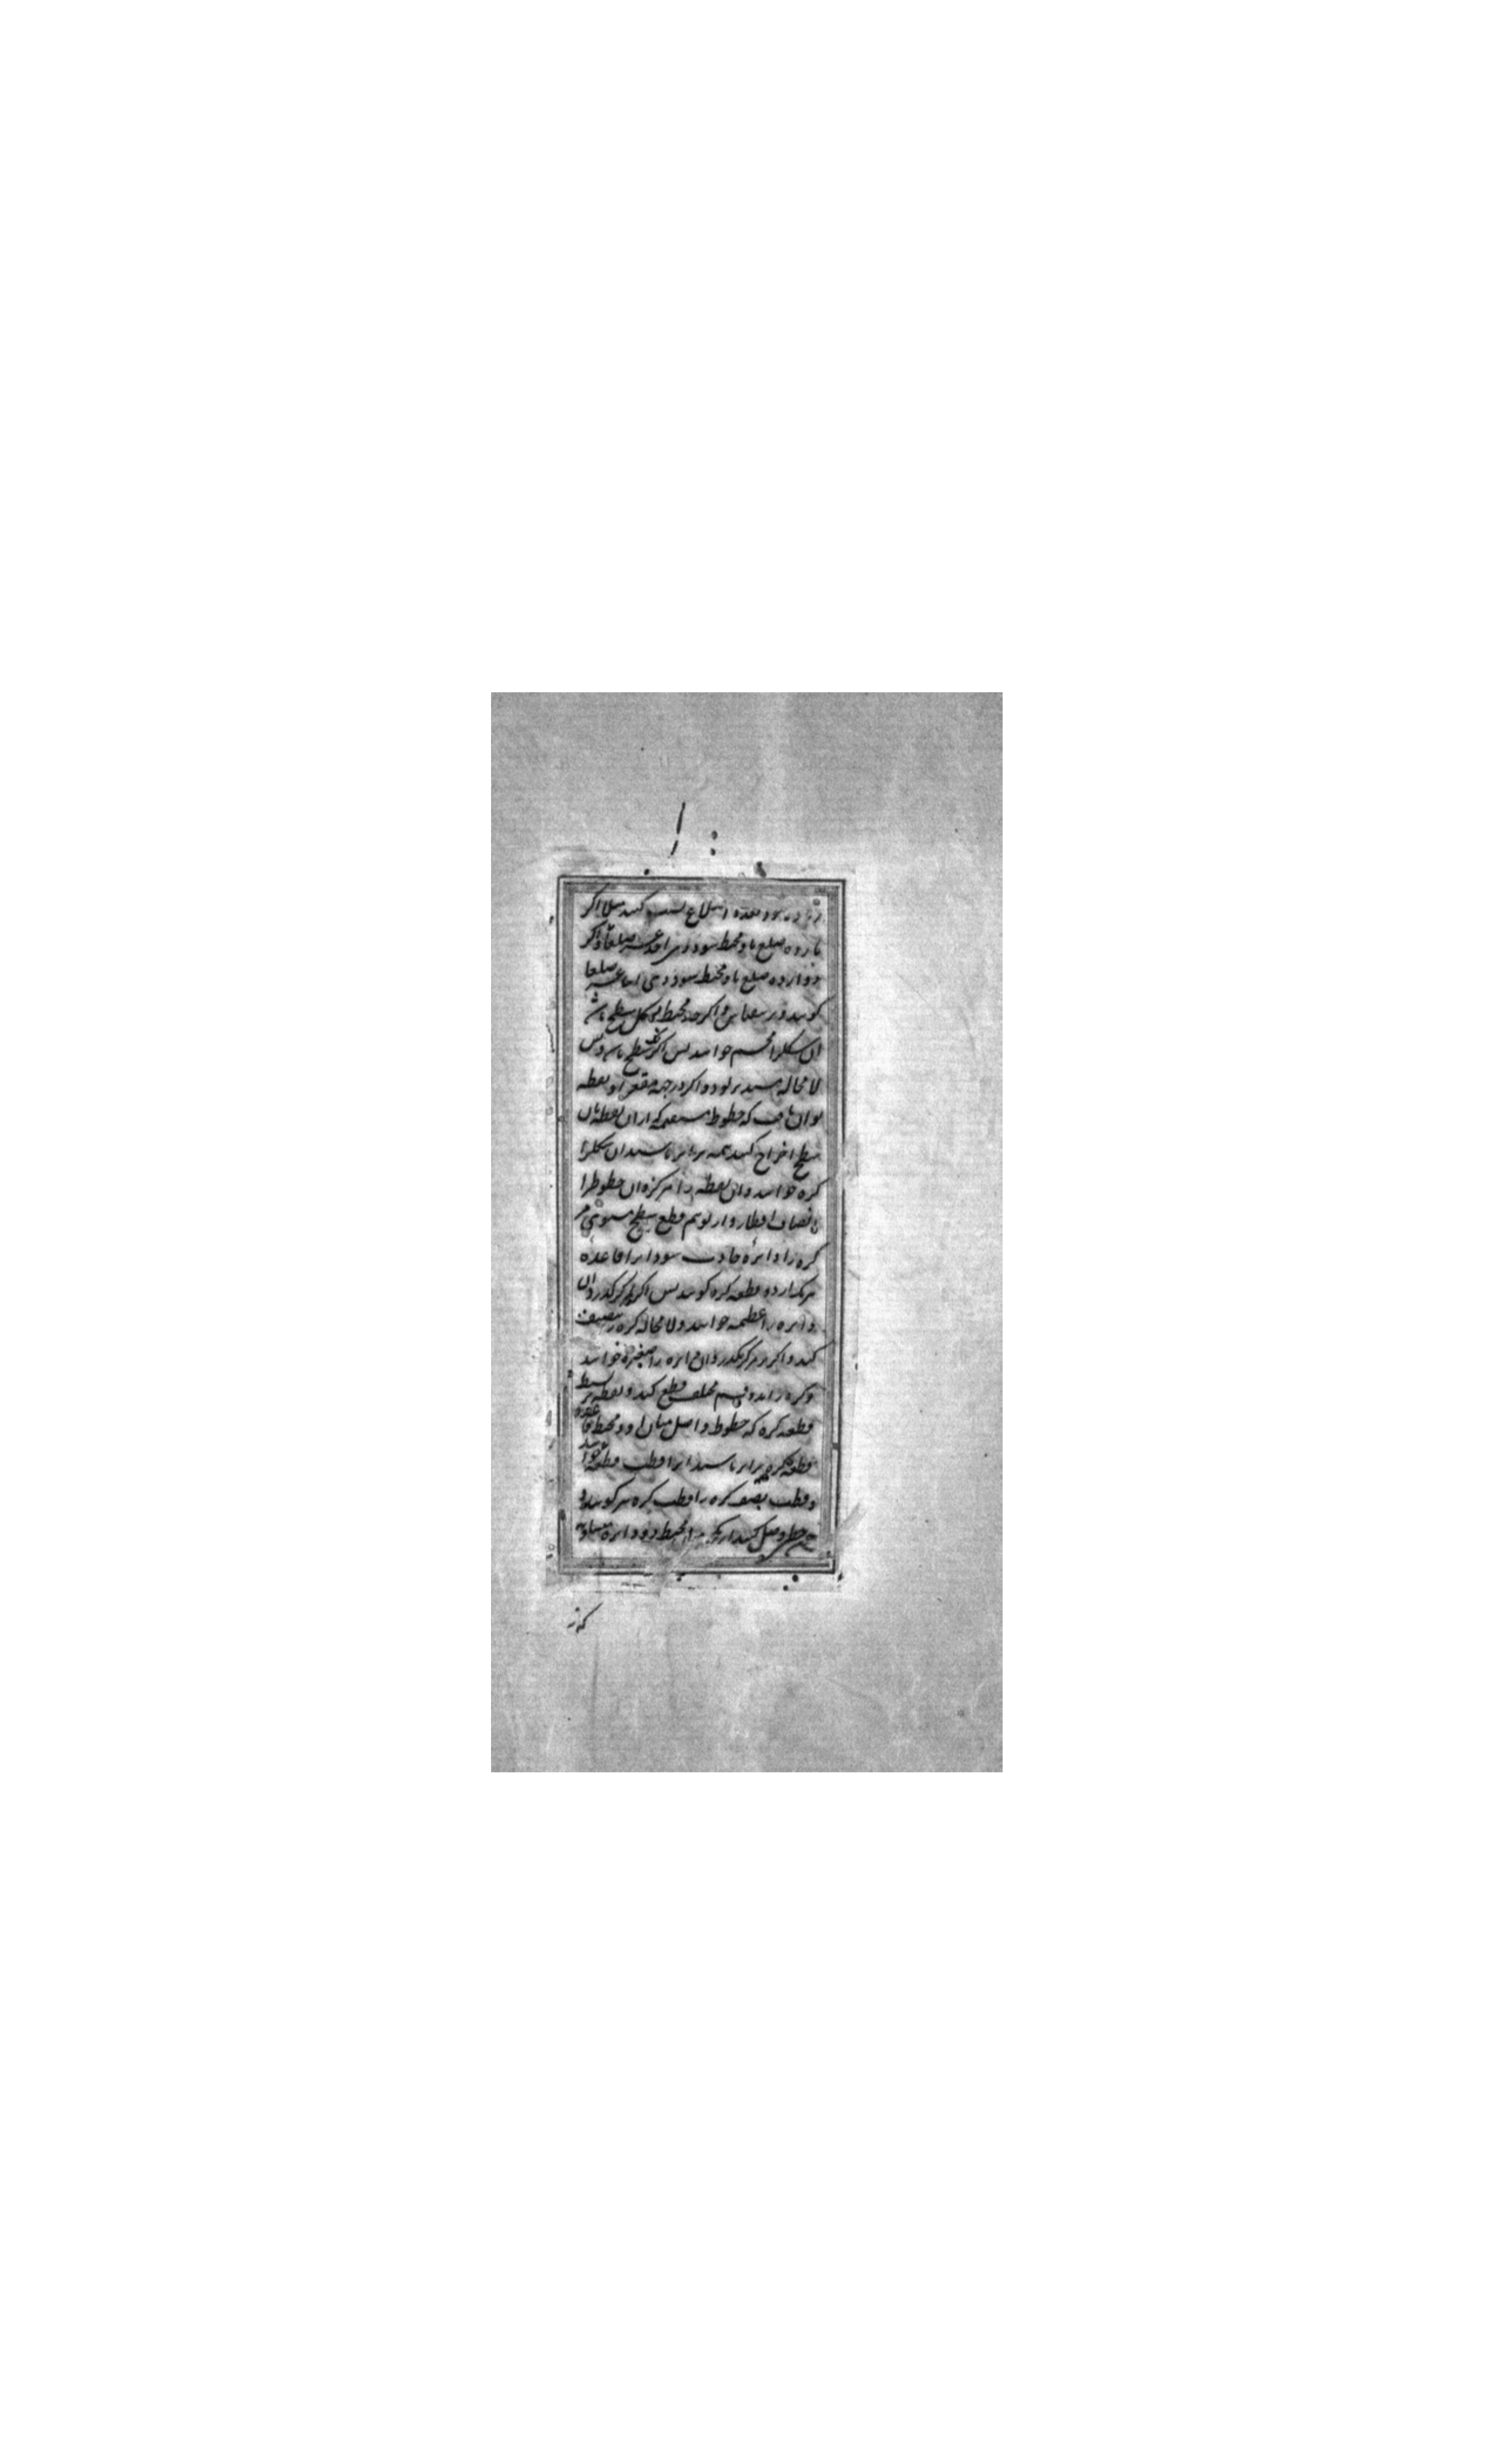 زیاده بود بعدد اضلاع نسبت کنند مثلا اگر
یازده ضلع باو محیط شود ذی احد عشر ضلعا و اگر
دوازده ضلع باو محیط شود ذی اثنا عشر ضلعا
گویند و بر این قیاس و اگر محیط شکل سطح باشد
آن شکل را مجسم خوانند پس اگر یک سطح باشد و بس
لا محاله مستدیر بود و اگر در جهة مقعر او نقطه
توان یافت که خطوط مستقیمه که از آن نقطه بآن
سطح اخراج کنند همه برابر باشند آن شکل را
کره خوانند و آن نقطه را مرکز و آن خطوط را
انصاف اقطار و از توهم قطع سطح مستوی مر
کره را دایره حادث شود آنرا قاعده
هر یک از دو قطعه کره گویند پس اگر بمرکز گذرد آن
دایره را عظیمه خوانند و لا محاله کره را تنصیف
کند و اگر بر مرکز نگذرد آن دایره را صغیره خوانند
و کره را بدو قسم مختلف قطع کند و نقطه بر بسیط
قطعه کره که خطوط واصل میان او و محیط قاعده
قطعه کره برابر باشند آنرا قطب قطعه خوانند
و قطب نصف کره را قطب کره نیز گویند و
چون خطی وصل کنند از یک محیط دو دایره متساویه
که از